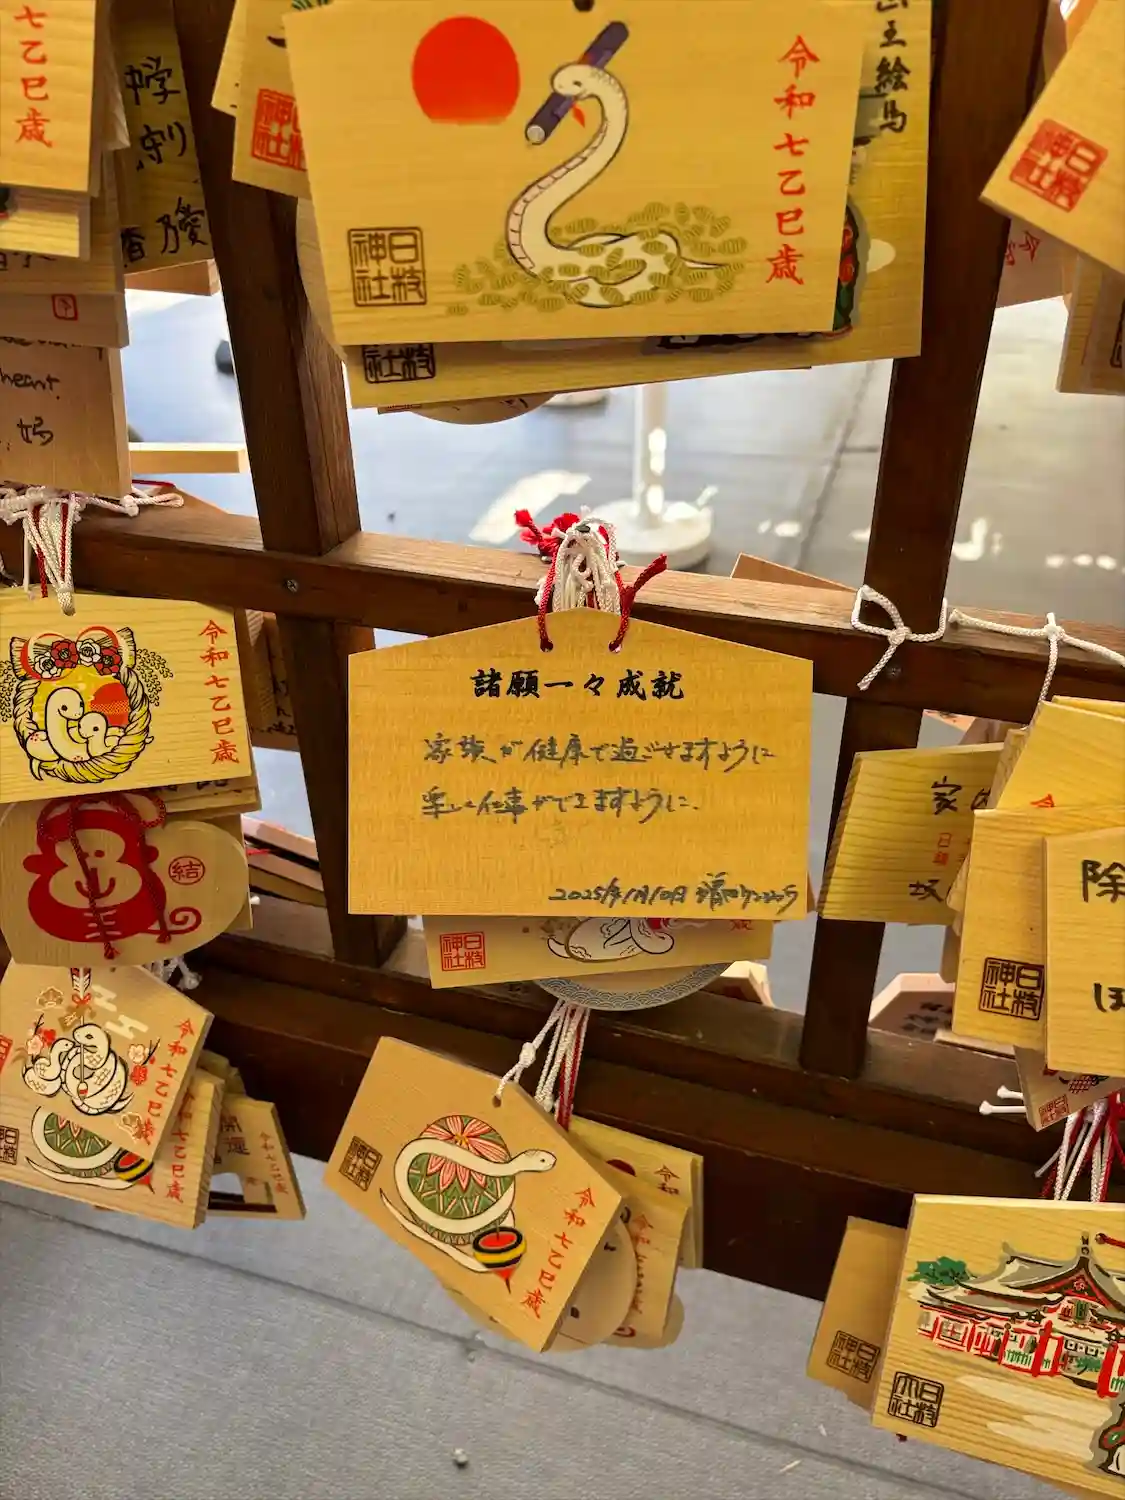 七乙巳歳
中学
守り
heart.
令和七乙巳歳
日枝神社
王絵馬
日枝神社
日枝神社
日枝
令和七乙巳歳
結
諸願一々成就
家族が健康で過ごせますように
楽しい仕事ができますように。
2025年1月10日
日枝神社
家
坂
除
ほ
日枝神社
令和七乙巳歳
令和七乙巳歳
日枝神社
開運
令和七乙巳歳
日枝神社
令和七乙巳歳
令和
日枝神社
日枝神社